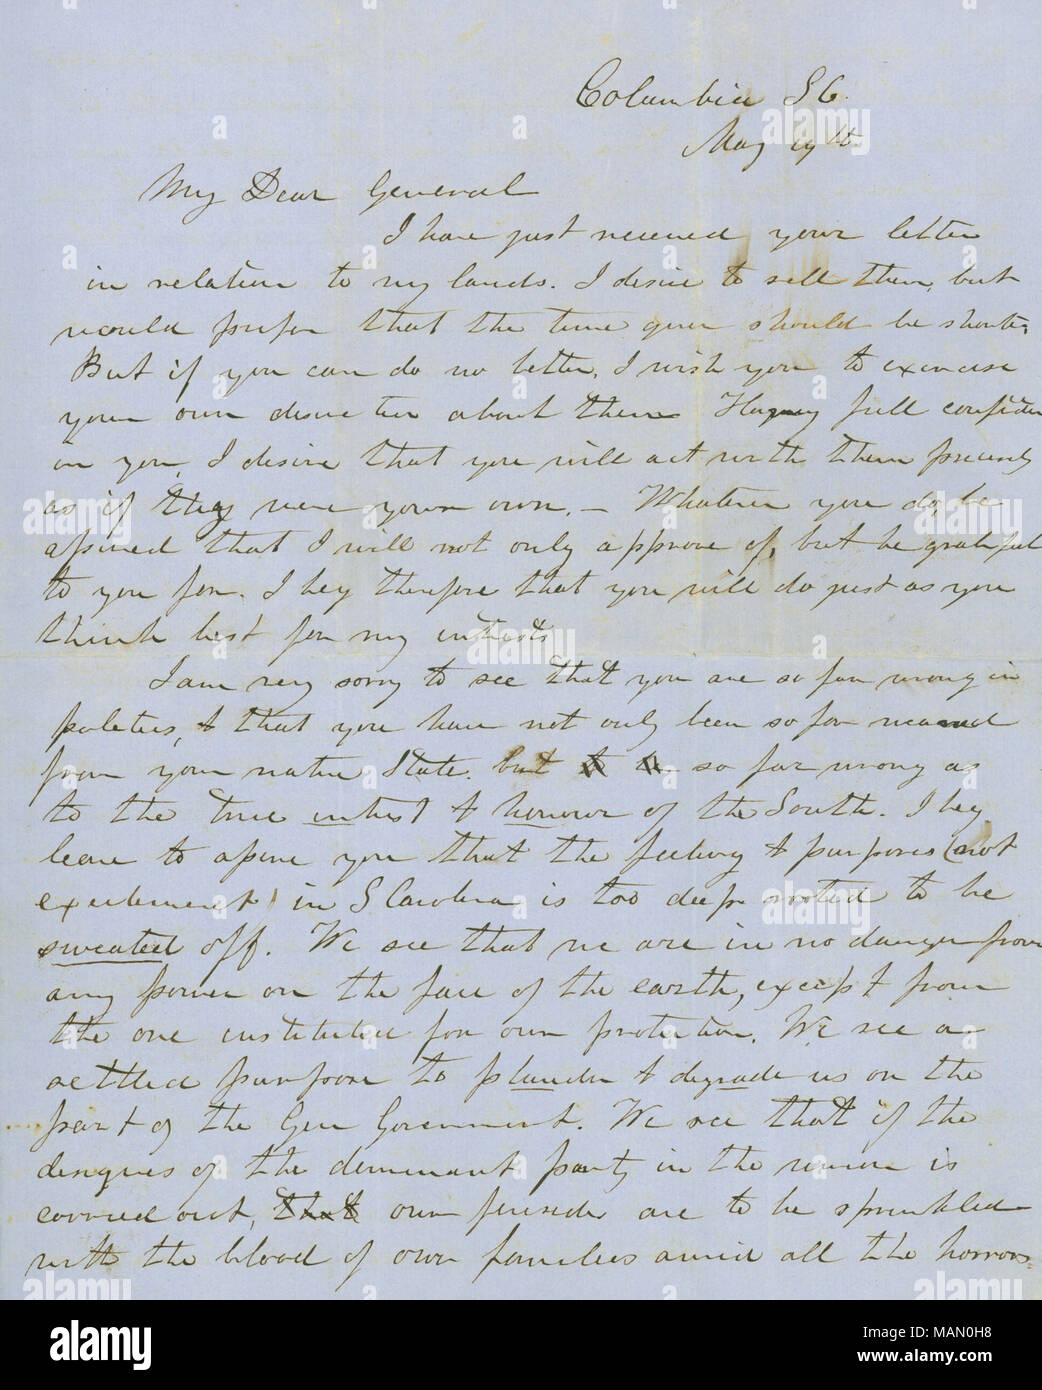 Columbia S C.
May 19th
My Dear General
I have just received your letter
in relation to my lands. I desire to sell them, but
would prefer that the time given should be shorter.
But if you can do no better, I wish you to exercise
your own discretion about them. Having full confiden
in you, I desire that you will act with them precisely
as if they were your own. – Whatever you do, be
assured that I will not only approve of, but be grateful
to you for. I beg therefore that you will do just as you
think best for my interests
I am very sorry to see that you are so far wrong in
politics, & that you have not only been so far weaned
from your native State. but so far wrong as
to the true interest & honour of the South. I beg
leave to assure you that the feeling & purposes (not
excitement) in S Carolina is too deep rooted to be
sweated off. We see that we are in no danger from
any power on the face of the earth, except from
the one instituted for our protection. We see a
settled purpose to plunder & degrade us on the
part of the Gen Government. We see that if the
designs of the dominant party in the union is
carried out, that our firesides are to be sprinkled
with the blood of our families amid all the horrors
alamy
a
Image ID: MAN0H8
www.alamy.com